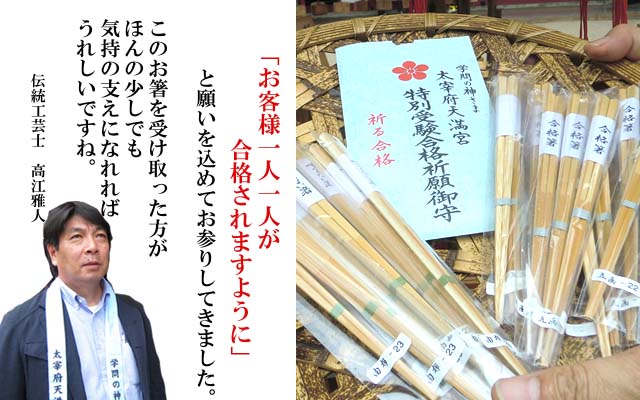 「お客様一人一人が
合格されますように」
と願いを込めてお参りしてきました。
このお箸を受け取った方が
ほんの少しでも
気持の支えになれれば
うれしいですね。
伝統工芸士 高江雅人
太宰府天満
学問の神
学問の神さま
太宰府天満宮
特別受験合格祈願御守
祈る合格
合格箸
合格箸
合格箸
合格箸
五画-22